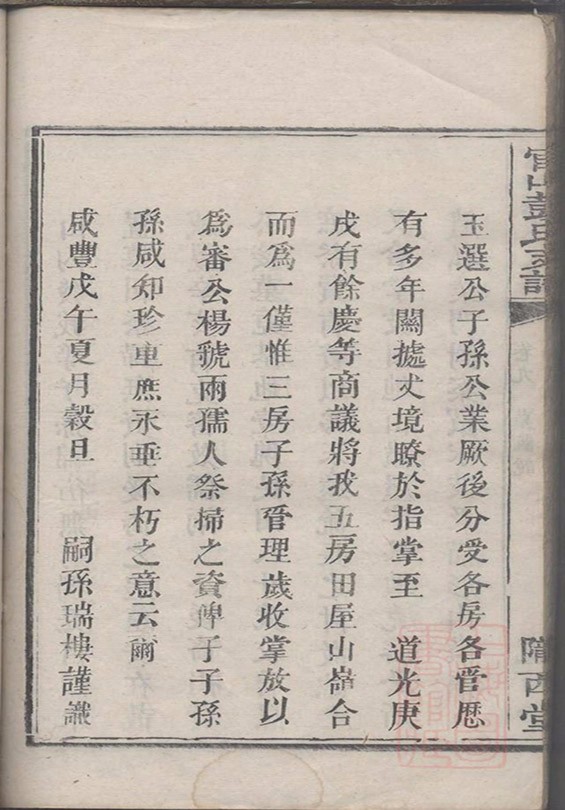 官山彭氏支譜
隴西堂
玉選公子孫公業厥後分受各房各管歷
有多年闗㨿丈境瞭於指掌至　道光庚
戌有餘慶等商議將我五房田屋山崙合
而爲一僅惟三房子孫管理歲收掌放以
爲審公楊號兩孺人祭掃之資俾子子孫
孫咸知珍重庶永垂不朽之意云爾
咸豐戊午夏月穀旦　嗣孫瑞樓謹識